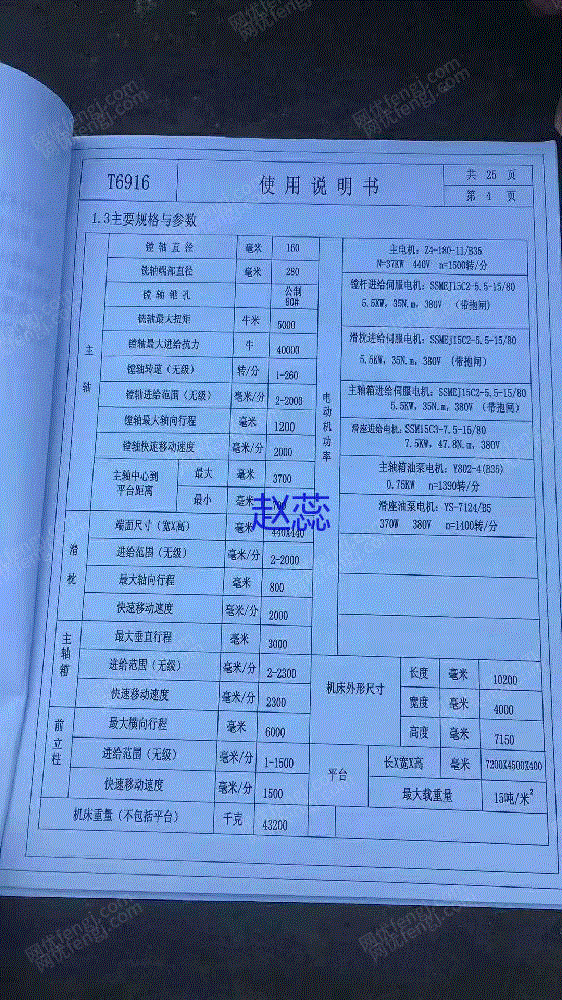 T6916
使用说明书
共 25 页
第 4 页
1.3主要规格与参数
主轴
镗轴直径 毫米 160
铣轴端部直径 毫米 280
镗轴锥孔 公制 80#
铣轴最大扭矩 牛米 5000
镗轴最大进给抗力 牛 40000
镗轴转速（无级） 转/分 1-260
镗轴进给范围（无级） 毫米/分 2-2000
镗轴最大轴向行程 毫米 1200
镗轴快速移动速度 毫米/分 2000
主轴中心到平台距离 最大 毫米 3700
最小 毫米
赵蕊
滑枕
端面尺寸（宽X高） 毫米 440X440
进给范围（无级） 毫米/分 2-2000
最大轴向行程 毫米 800
快速移动速度 毫米/分 2000
主轴箱
最大垂直行程 毫米 3000
进给范围（无级） 毫米/分 2-2300
快速移动速度 毫米/分 2300
前立柱
最大横向行程 毫米 6000
进给范围（无级） 毫米/分 1-1500
快速移动速度 毫米/分 1500
机床重量（不包括平台） 千克 43200
电动机功率
主电机：Z4-180-11/B35
N=37KW 440V n=1500转/分
镗杆进给伺服电机：SSMEJ15C2-5.5-15/80
5.5KW，35N.m，380V （带抱闸）
滑枕进给伺服电机：SSMEJ15C2-5.5-15/80
5.5KW，35N.m，380V （带抱闸）
主轴箱进给伺服电机：SSMEJ15C2-5.5-15/80
5.5KW，35N.m，380V （带抱闸）
滑座进给电机：SSM15C3-7.5-15/80
7.5KW，47.8N.m，380V
主轴箱油泵电机：Y802-4(B35)
0.75KW n=1390转/分
滑座油泵电机：YS-7124/B5
370W 380V n=1400转/分
机床外形尺寸 长度 毫米 10200
宽度 毫米 4000
高度 毫米 7150
平台 长X宽X高 毫米 7200X4500X400
最大载重量 15吨/米²
网优fengj.com